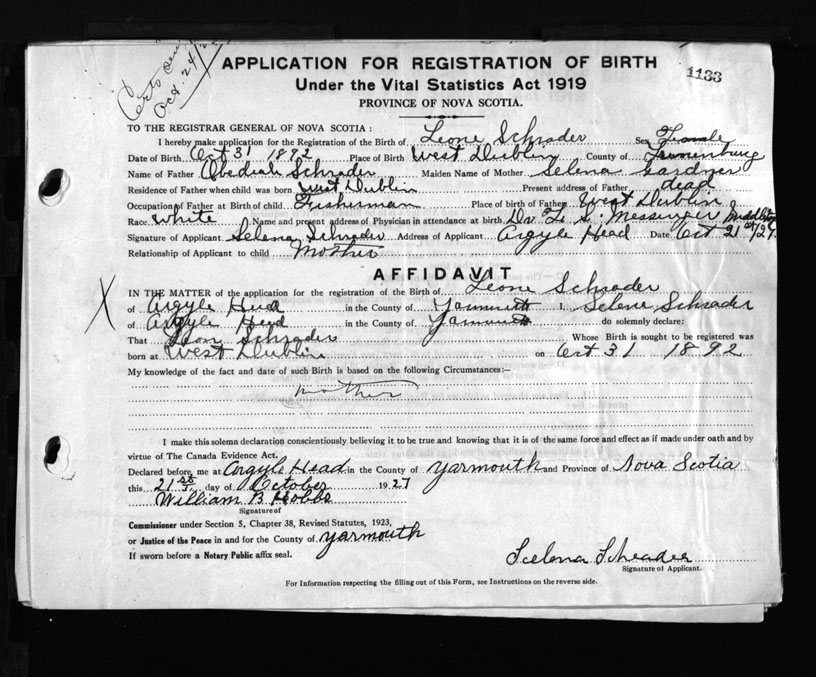 APPLICATION FOR REGISTRATION OF BIRTH
Oct. 24/
1133
Under the Vital Statistics Act 1919
PROVINCE OF NOVA SCOTIA.
TO THE REGISTRAR GENERAL OF NOVA SCOTIA:
I hereby make application for the Registration of the Birth of Leone Schrader Sex Female
Date of Birth Oct 31 1892 Place of Birth West Dublin County of Lunenburg
Name of Father Obediah Schrader Maiden Name of Mother Selena Gardner
Residence of Father when child was born West Dublin Present address of Father dead
Occupation of Father at Birth of child Fisherman Place of birth of Father West Dublin
Race White Name and present address of Physician in attendance at birth Dr. S. Messinger Middleton
Signature of Applicant Selena Schrader Address of Applicant Argyle Head Date Oct 21st/27
Relationship of Applicant to child Mother
AFFIDAVIT
IN THE MATTER of the application for the registration of the Birth of Leone Schrader
X of Argyle Head in the County of Yarmouth I, Selena Schrader
of Argyle Head in the County of Yarmouth do solemnly declare:
That Leon Schrader Whose Birth is sought to be registered was
born at West Dublin on Oct 31 1892
My knowledge of the fact and date of such Birth is based on the following Circumstances:—
mother
I make this solemn declaration conscientiously believing it to be true and knowing that it is of the same force and effect as if made under oath and by
virtue of The Canada Evidence Act.
Declared before me at Argyle Head in the County of Yarmouth and Province of Nova Scotia
this 21st day of October 1927
William B Hobbs
Signature of
Commissioner under Section 5, Chapter 38, Revised Statutes, 1923,
or Justice of the Peace in and for the County of Yarmouth
If sworn before a Notary Public affix seal.
Scelena Schrader
Signature of Applicant.
For Information respecting the filling out of this Form, see Instructions on the reverse side.